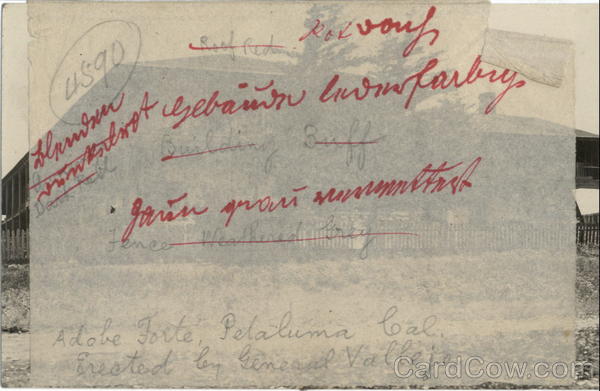 4590
Roof Red
Rot Dach
Blenden
dunkelrot
Gebäude lederfarbig
Building Buff
Zaun grau verwettert
Fence Weathered Grey
Adobe Forte, Petaluma Cal
Erected by General Vallejo
CardCow.com